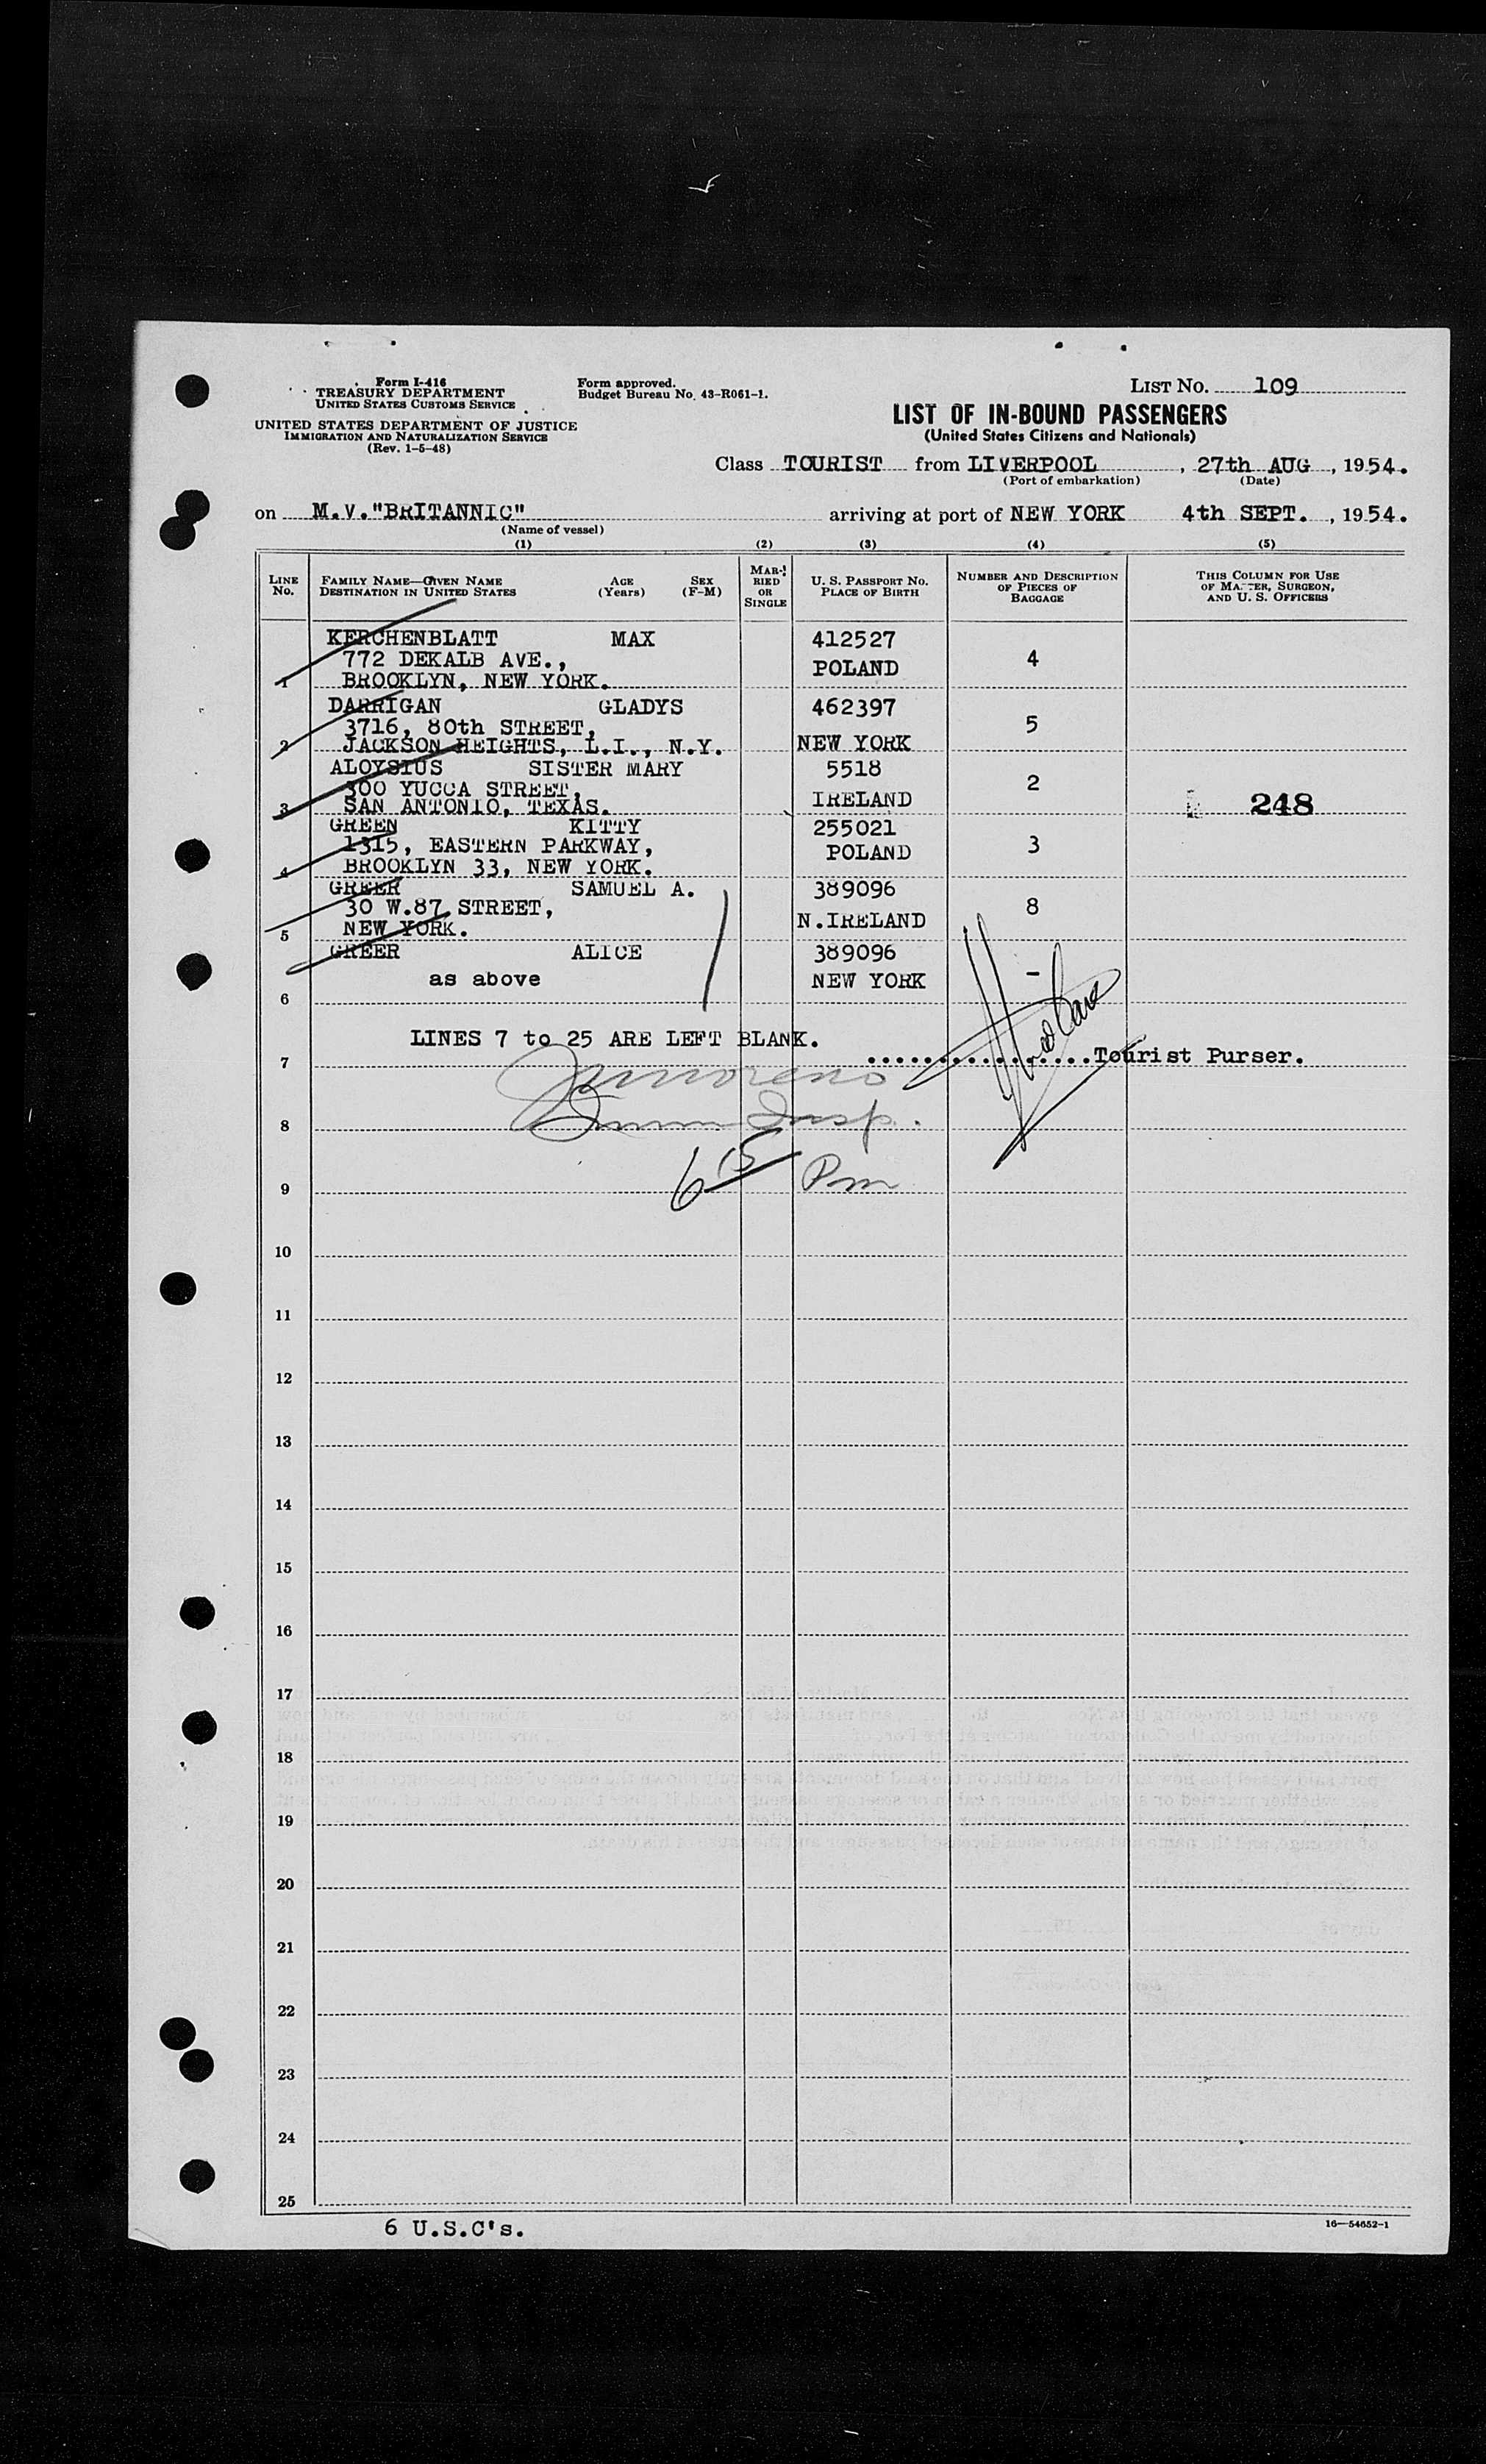 Form I-416
TREASURY DEPARTMENT
UNITED STATES CUSTOMS SERVICE
UNITED STATES DEPARTMENT OF JUSTICE
IMMIGRATION AND NATURALIZATION SERVICE
(Rev. 1-5-48)
Form approved.
Budget Bureau No. 43-R061-1.
LIST NO. 109
LIST OF IN-BOUND PASSENGERS
(United States Citizens and Nationals)
Class TOURIST from LIVERPOOL, 27th AUG, 1954.
(Port of embarkation) (Date)
on M.V."BRITANNIC" arriving at port of NEW YORK 4th SEPT., 1954.
(Name of vessel)
(1) (2) (3) (4) (5)
LINE No.
FAMILY NAME—GIVEN NAME
DESTINATION IN UNITED STATES
AGE (Years)
SEX (F-M)
MARRIED OR SINGLE
U. S. PASSPORT NO.
PLACE OF BIRTH
NUMBER AND DESCRIPTION OF PIECES OF BAGGAGE
THIS COLUMN FOR USE OF MASTER, SURGEON, AND U. S. OFFICERS
KERCHENBLATT MAX 412527
772 DEKALB AVE., POLAND 4
1 BROOKLYN, NEW YORK.
DARRIGAN GLADYS 462397
3716, 80th STREET, 5
2 JACKSON HEIGHTS, L.I., N.Y. NEW YORK
ALOYSIUS SISTER MARY 5518
300 YUCCA STREET, 2
3 SAN ANTONIO, TEXAS. IRELAND 248
GREEN KITTY 255021
1315, EASTERN PARKWAY, POLAND 3
4 BROOKLYN 33, NEW YORK.
GREER SAMUEL A. 389096
30 W.87 STREET, 8
5 NEW YORK. N.IRELAND
GREER ALICE 389096
as above NEW YORK -
6
LINES 7 to 25 ARE LEFT BLANK.
7 ................Tourist Purser.
8 Imm Insp.
9 6 15 Pm
10
11
12
13
14
15
16
17
18
19
20
21
22
23
24
25
6 U.S.C's.
16—54652-1